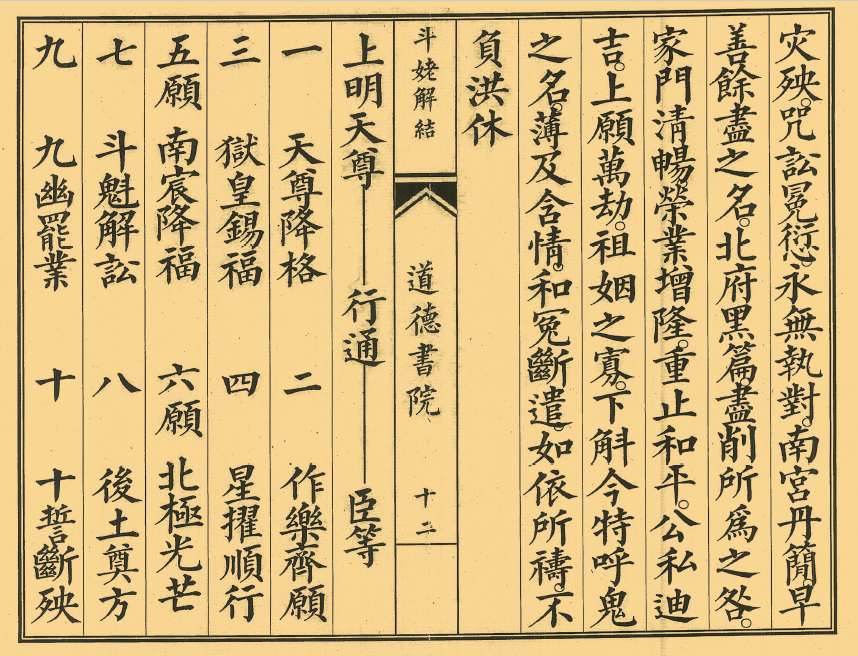 灾殃。咒訟冤愆。永無執對。南宮丹簡。早
善餘盡之名。北府黑篇。盡削所為之咎。
家門清暢。榮業增隆。重止和平。公私迪
吉。上願萬劫。祖姻之寡。下斛今特呼鬼
之名。薄及含情。和冤斷遣。如依所禱。不
負洪休
斗姥解結 道德書院 十二
上明天尊 行通 臣等
一 天尊降格 二 作樂齊願
三 獄皇錫福 四 星擢順行
五願 南宸降福 六願 北極光芒
七 斗魁解訟 八 後土奠方
九 九幽罷業 十 十誓斷殃